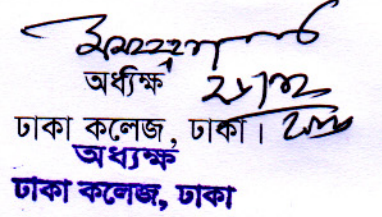 অধ্যক্ষ
ঢাকা কলেজ, ঢাকা।
অধ্যক্ষ
ঢাকা কলেজ, ঢাকা